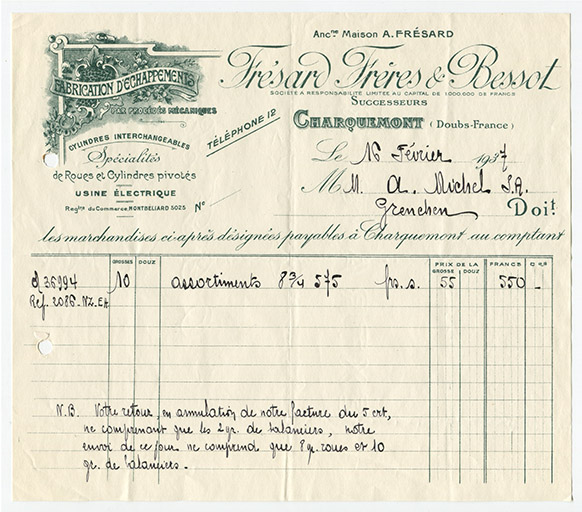 Anc.ne Maison A. FRÉSARD
FABRICATION D'ÉCHAPPEMENTS
PAR PROCÉDÉS MÉCANIQUES
Frésard Frères & Bessot
SOCIÉTÉ A RESPONSABILITÉ LIMITÉE AU CAPITAL DE 1.000.000 DE FRANCS
SUCCESSEURS
CHARQUEMONT (Doubs-France)
CYLINDRES INTERCHANGEABLES
Spécialités
de Roues et Cylindres pivotés
USINE ÉLECTRIQUE
Reg.tre du Commerce, MONTBÉLIARD 5025
TÉLÉPHONE 12
N°
Le 16 Février 1937
M M. A. Michel S.A.
Grenchen Doit
les marchandises ci-après désignées payables à Charquemont au comptant
GROSSES DOUZ PRIX DE LA GROSSE DOUZ FRANCS
36994 10 assortiments 8 3/4 575 frs. s. 55 550 -
Ref. 2086-NZ.EA
N.B. Votre retour, en annulation de notre facture du 5 crt,
ne comprenant que les 2 gr. de balanciers, notre
envoi de ce jour ne comprend que 8 gr. roues et 10
gr. de balanciers.-